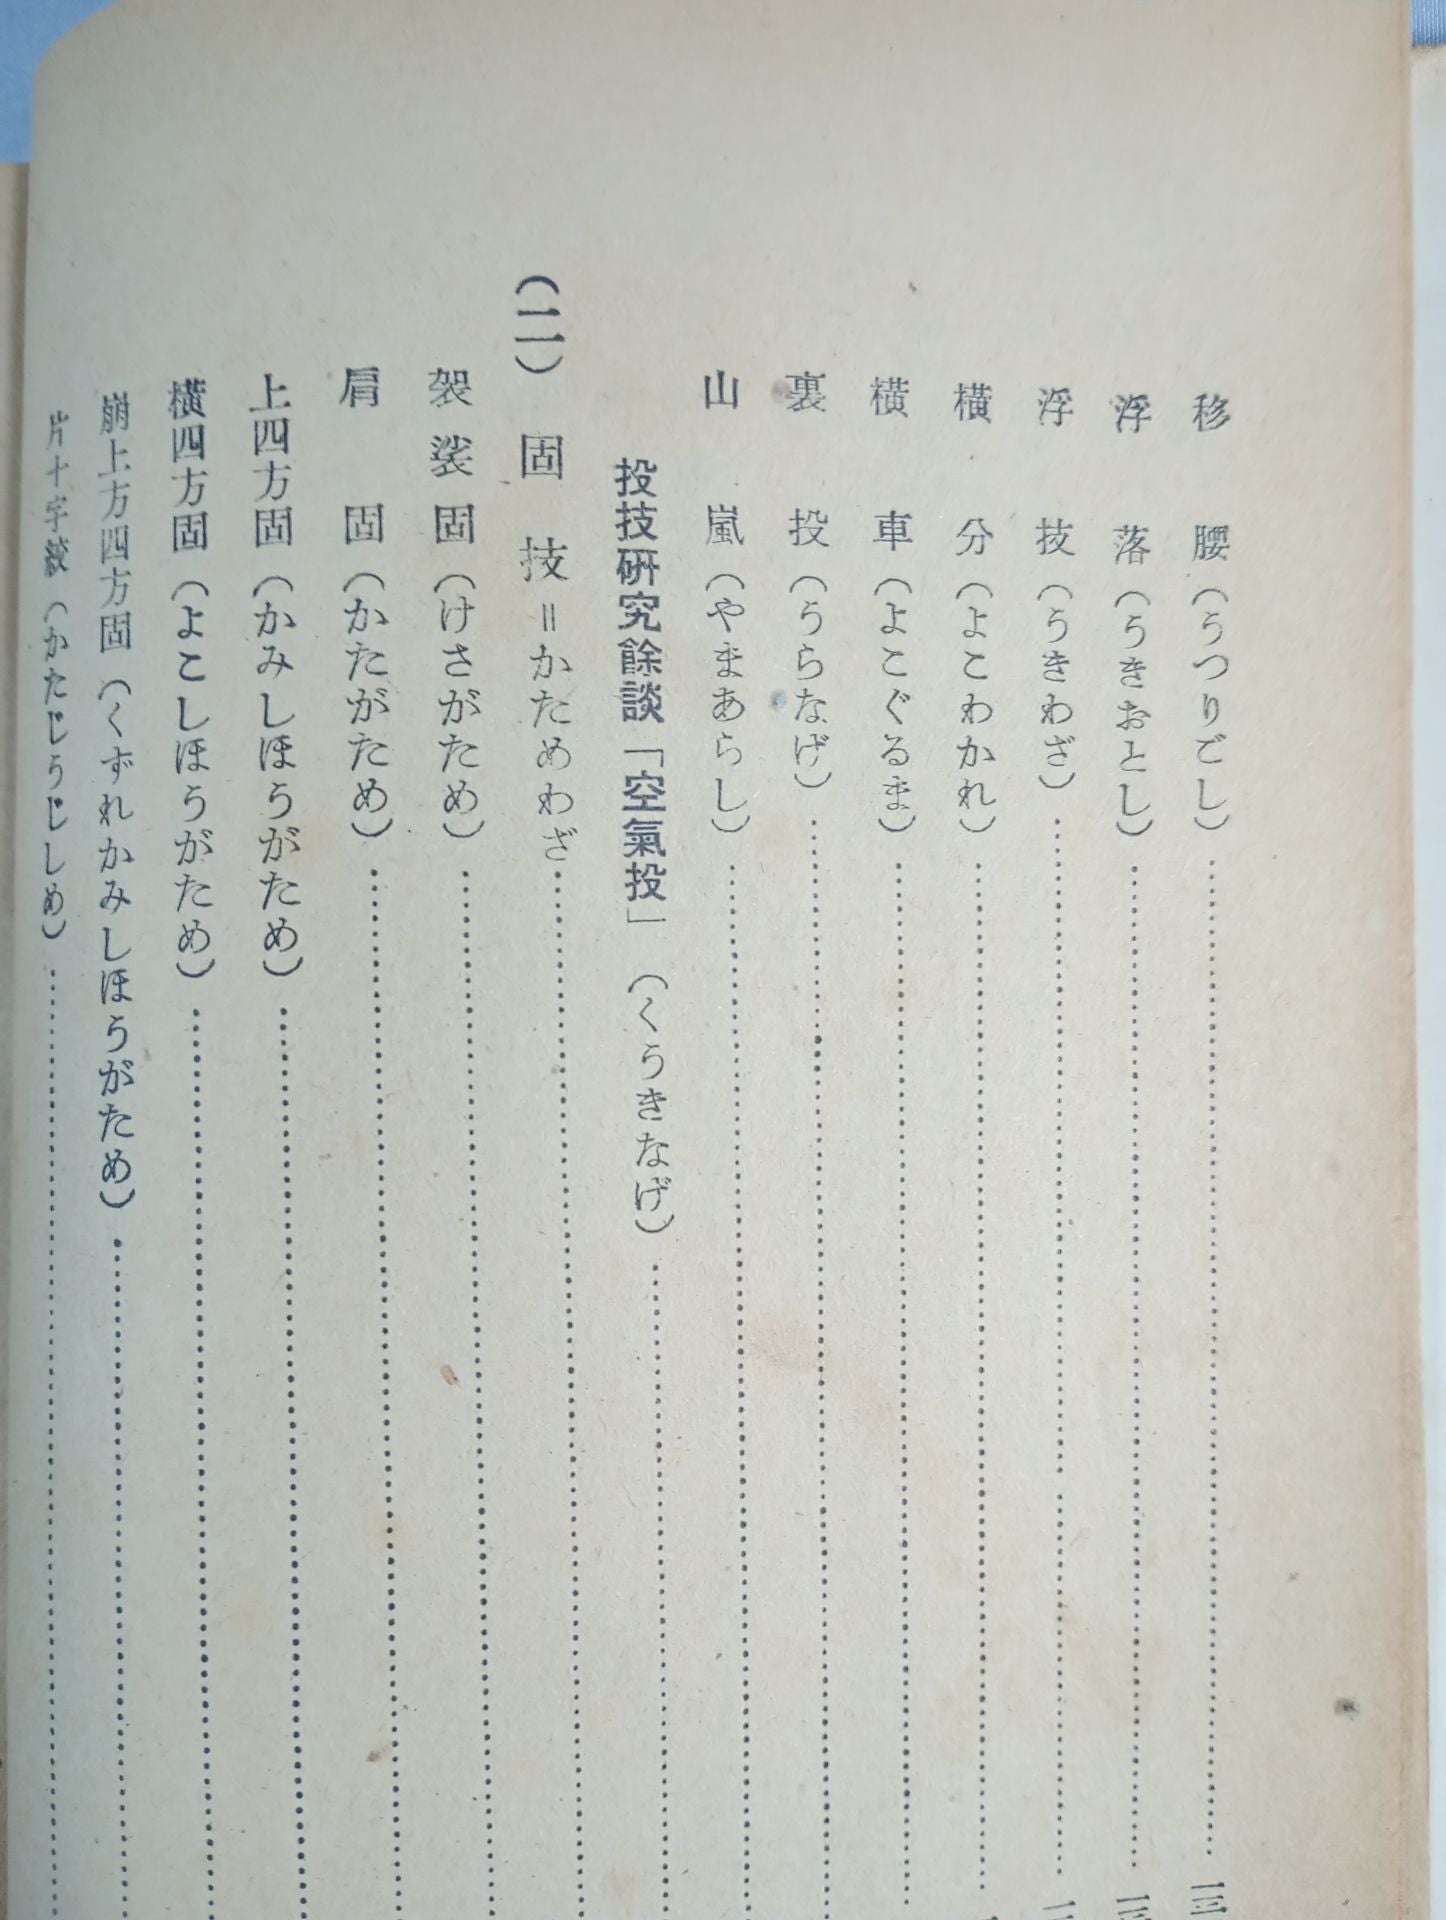 移腰(うつりごし)
浮落(うきおとし)
浮技(うきわざ)
横分(よこわかれ)
横車(よこぐるま)
裏投(うらなげ)
山嵐(やまあらし)
投技研究餘談「空氣投」(くうきなげ)
(二)固技=かためわざ
袈裟固(けさがため)
肩固(かたがため)
上四方固(かみしほうがため)
横四方固(よこしほうがため)
崩上方四方固(くずれかみしほうがため)
片十字絞(かたじうじしめ)